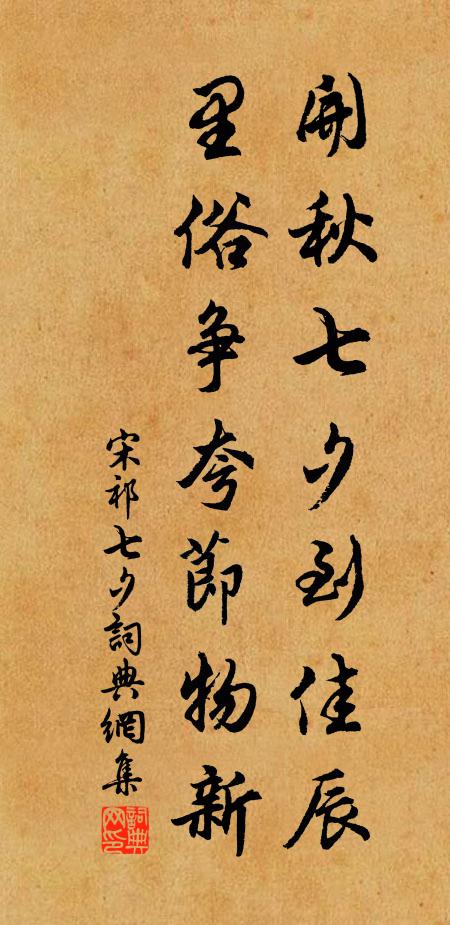 開秋七夕到佳辰
里俗争夸節物新
宋祁七夕詞典網集
詞典网印